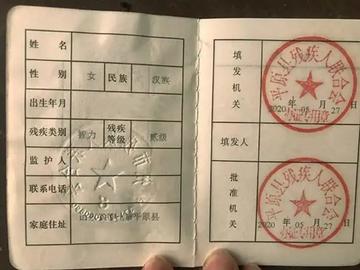 姓名
性别 女 民族 汉族
出生年月
残疾类别 智力 残疾等级 贰级
监护人
联系电话
家庭住址 平原县
填发机关
平原县残疾人联合会
2020年05月27日
办证专用章
填发人
批准机关
平原县残疾人联合会
2020年05月27日
办证专用章